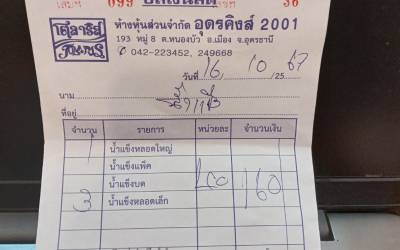 เล่มที่ 099 บิลเงินสด เลขที่ 36
โตเอารีย์
ห้างหุ้นส่วนจำกัด อุดรคิงส์ 2001
193 หมู่ 8 ต.หนองบัว อ.เมือง จ.อุดรธานี
042-223452, 249668
วันที่ 16 / 10 / 2567
นาม
ที่อยู่
จำนวน รายการ หน่วยละ จำนวนเงิน
1 น้ำแข็งหลอดใหญ่
น้ำแข็งแพ็ค
น้ำแข็งบด 160
3 น้ำแข็งหลอดเล็ก